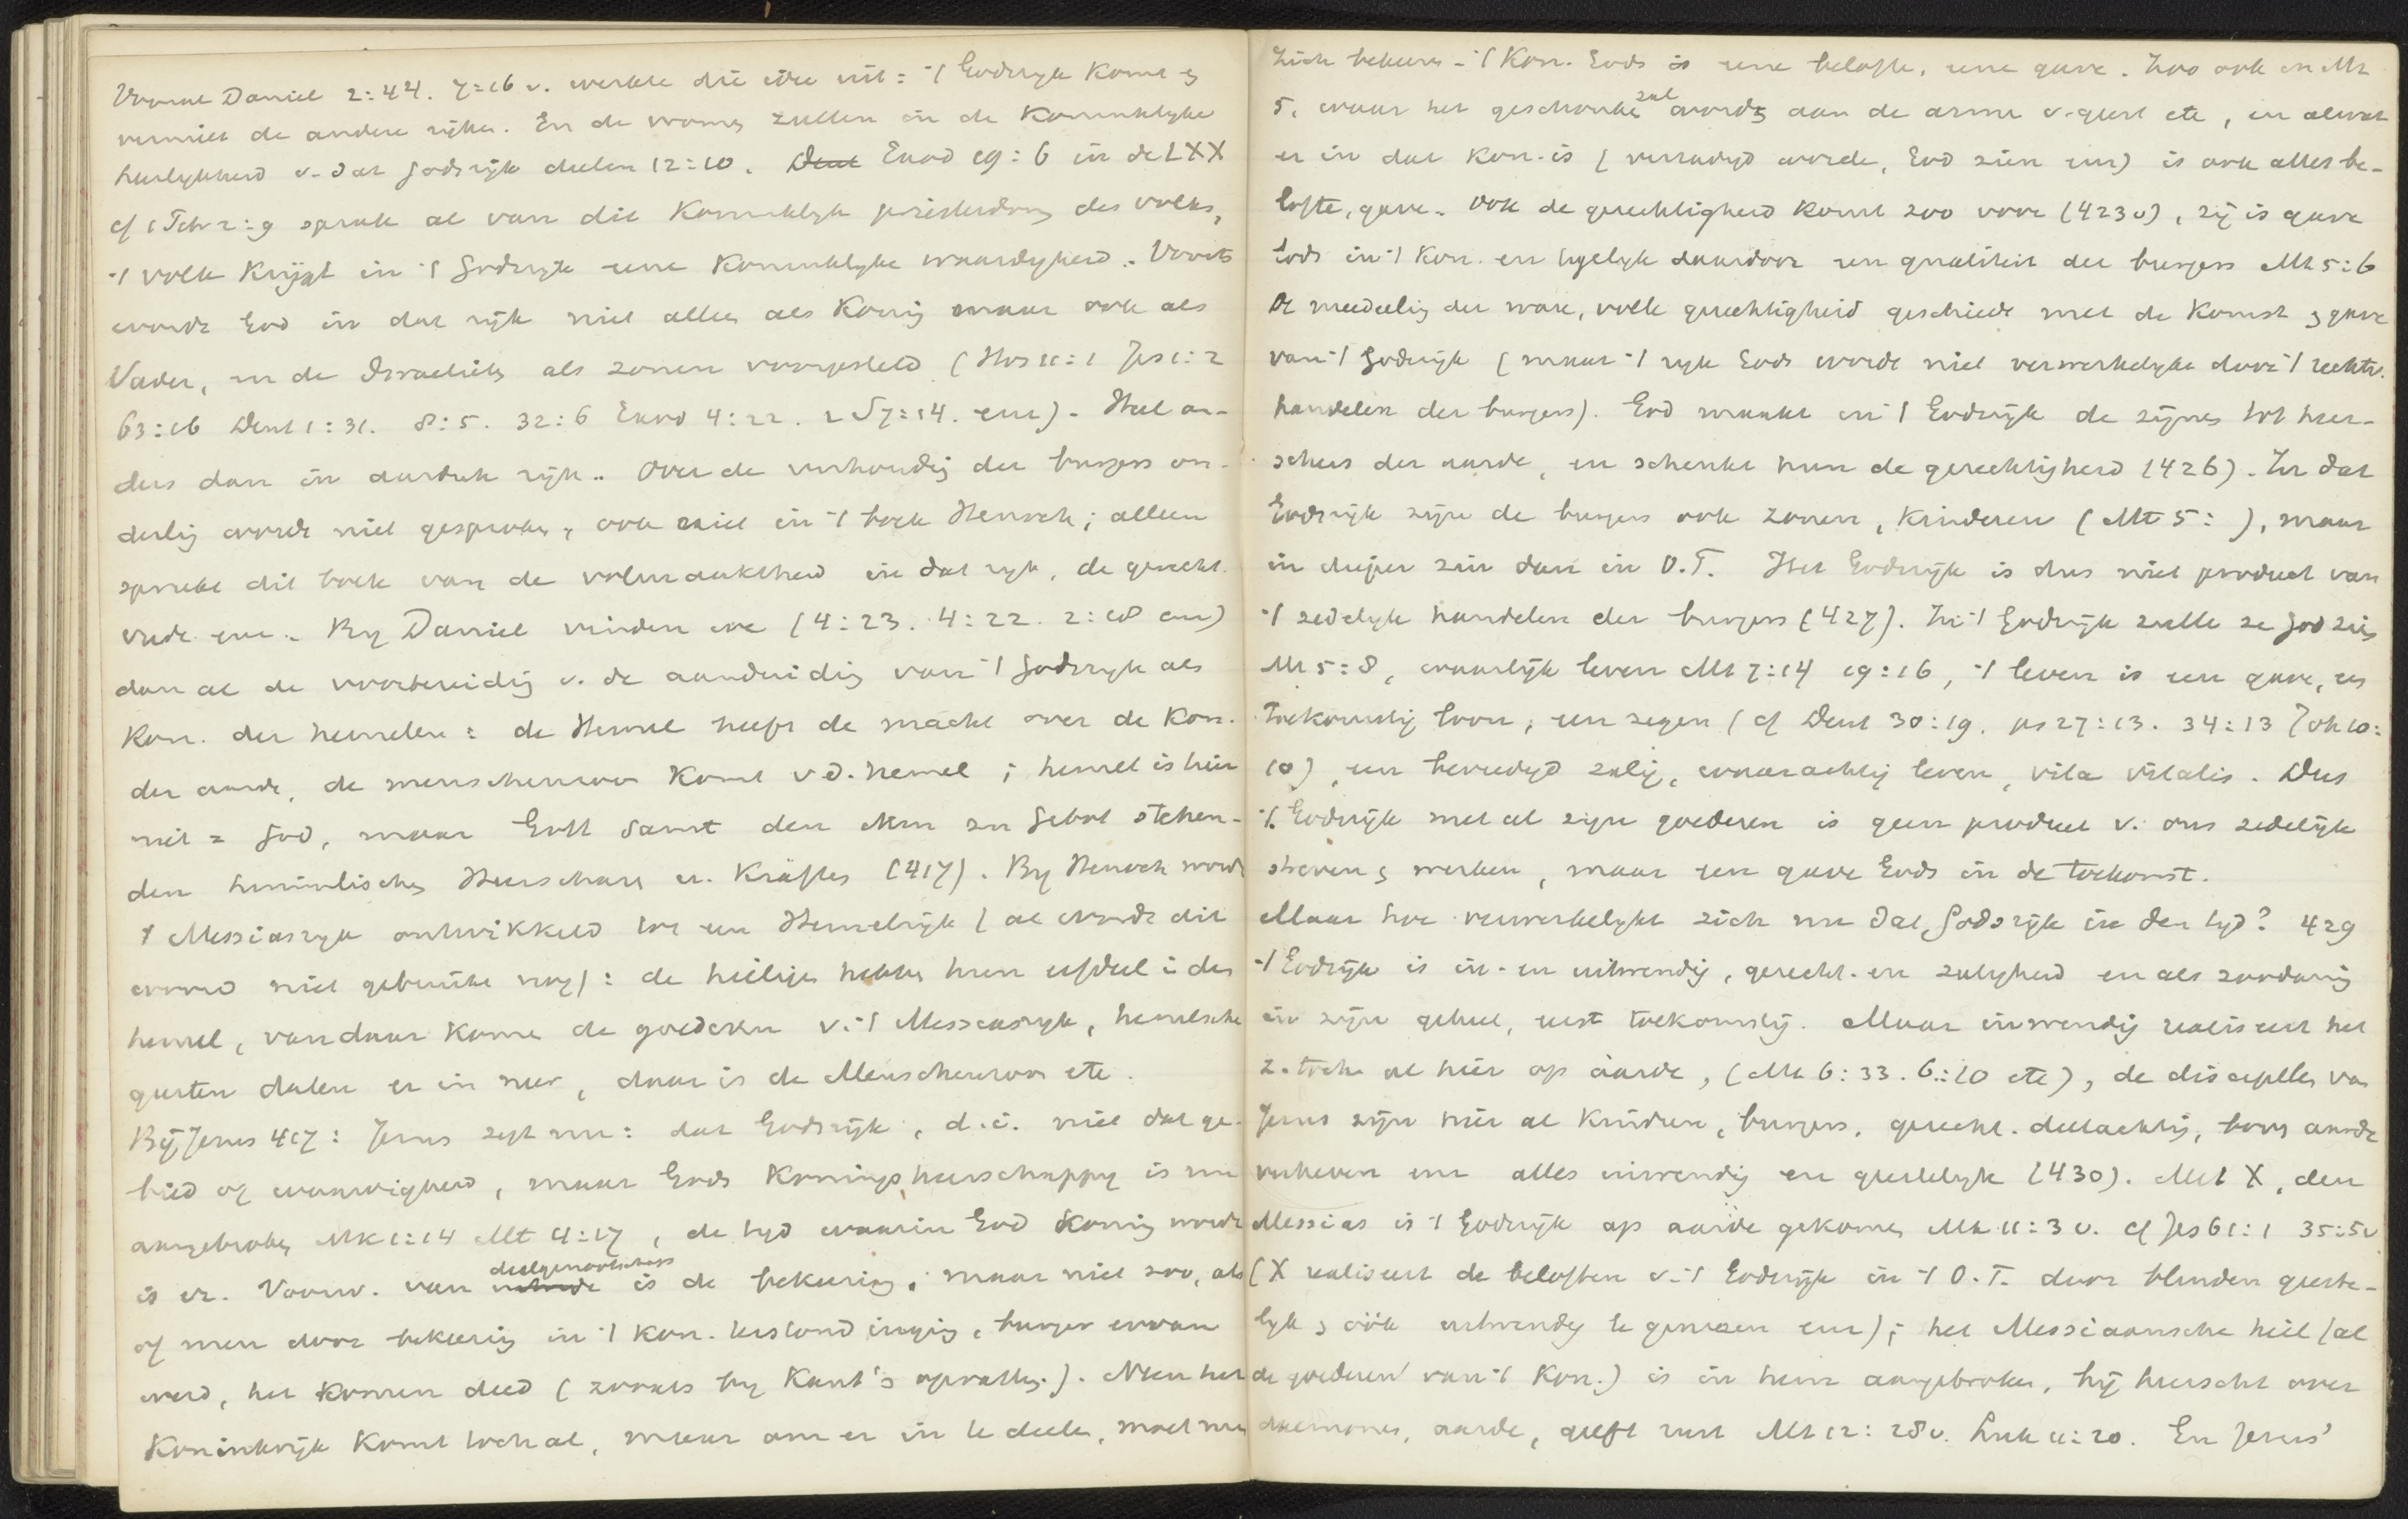 Vooral Daniel 2:44. 7:26 v. werkte die idee uit: 't Godsryk komt en
verniet de andere rijken. En de vromen zullen in de Koninklyke
heerlykheid v. dat Godsrijk deelen 12:10. Deut Exod 19:6 in de LXX
cf 1 Petr 2:9 sprak al van die Koninklyk priesterdom des volks,
't volk krijgt in 't Godsryk eene Koninklyke waardigheid. Voorts
wordt God in dat rijk niet alleen als Koning maar ook als
Vader, en de Israelieten als zonen voorgesteld (Hos 11:1 Jes 1:2
63:16 Deut 1:31. 8:5. 32:6 Exod 4:22. 2 S 7:14. enz). Heel an-
ders dan in aardsch rijk. Over de verhouding der burgers on-
derling wordt niet gesproken, ook niet in 't boek Henoch; alleen
spreekt dit boek van de volmaaktheid in dat ryk, de gerecht.
vrede enz. By Daniel vinden we (4:23. 4:22. 2:18 enz)
dan al de voorbereiding v. de aanduiding van 't Godsryk als
Kon. der hemelen: de Hemel heeft de macht over de Kon.
der aarde, de menschenzoon komt v d. hemel; hemel is hier
niet = God, maar Gott samt den ihm zu Gebot stehen-
den himmlischen Heerscharen u. Kräften (417). By Henoch wordt
't Messiasryk ontwikkeld tot een Hemelrijk (al wordt dit
woord niet gebruikt nog): de heiligen hebben hun erfdeel i den
hemel, vandaar komen de goederen v. 't Messiasryk, hemelsche
geesten dalen er in neer, daar is de Menschenzoon etc.
Bij Jezus 417: Jezus zegt nu: dat Godsrijk, d.i. niet dat ge-
bied of aanwezigheid, maar Gods Koningsheerschappy is nu
aangebroken Mk 1:14 Mt 4:17, de tyd waarin God Koning wordt
is er. Voorw. van deelgenootschap is de bekeering, maar niet zoo, als
of men door bekeering in 't Kon. terstond inging, burger ervan
werd, het komen deed (zooals by Kant's opvatting). Neen het
Koninkrijk komt toch al, maar om er in te deelen, moet men
zich bekeeren. 't Kon. Gods is eene belofte, eene gave. Zoo ook in Mt
5. waar het geschonken zal worden aan de armen v. geest etc, en alwat
er in dat Kon. is (verzadigd worden, God zien enz) is ook alles be-
lofte, gave. Ook de gerechtigheid komt zoo voor (423v), zij is gave
Gods in 't Kon. en tegelyk daardoor een qualiteit der burgers Mt 5:6
De meedeeling der ware, volle gerechtigheid geschiedt met de Komst en gave
van 't Godsrijk (maar 't ryk Gods wordt niet verwerkelykt door 't rechtv.
handelen der burgers). God maakt in 't Godsrijk de zijnen tot heer-
schers der aarde, en schenkt hun de gerechtigheid (426). In dat
Godsrijk zijn de burgers ook zonen, Kinderen (Mt 5: ), maar
in dieper zin dan in O.T. Het Godsrijk is dus niet product van
't zedelyk handelen der burgers (427). In 't Godsrijk zullen ze God zien
Mt 5:8, waarlijk leven Mt 7:14 19:16, 't leven is een gave, een
toekomstig loon, een zegen (cf Deut 30:19. ps 27:13. 34:13 Joh 10:
10), een bevredigd zalig, waarachtig leven, vita vitalis. Dus
't Godsrijk met al zijn goederen is geen product v. ons zedelijk
streven en werken, maar een gave Gods in de toekomst.
Maar hoe verwerkelykt zich nu dat Godsrijk in den tyd? 429
't Godsrijk is in- en uitwendig, gerecht. en zaligheid en als zoodanig
in zijn geheel, eerst toekomstig. Maar inwendig realiseert het
z. toch al hier op aarde, (Mt 6:33. 6:10 etc), de discipelen van
Jezus zijn hier al Kinderen, burgers, gerecht. deelachtig, boven aarde
verheven enz alles inwendig en geestelyk (430). Met X, den
Messias is 't Godsrijk op aarde gekomen Mt 11:3 v. cf Jes 61:1 35:5v
(X realiseert de beloften v. 't Godsrijk in 't O.T. door blinden geeste-
lyk en óók uitwendig te genezen enz); het Messiaansche heil (al
de goederen van 't Kon.) is in hem aangebroken, hij heerscht over
daemonen, aarde, geeft rust Mt 12:28v. Luk 11:20. En Jezus'